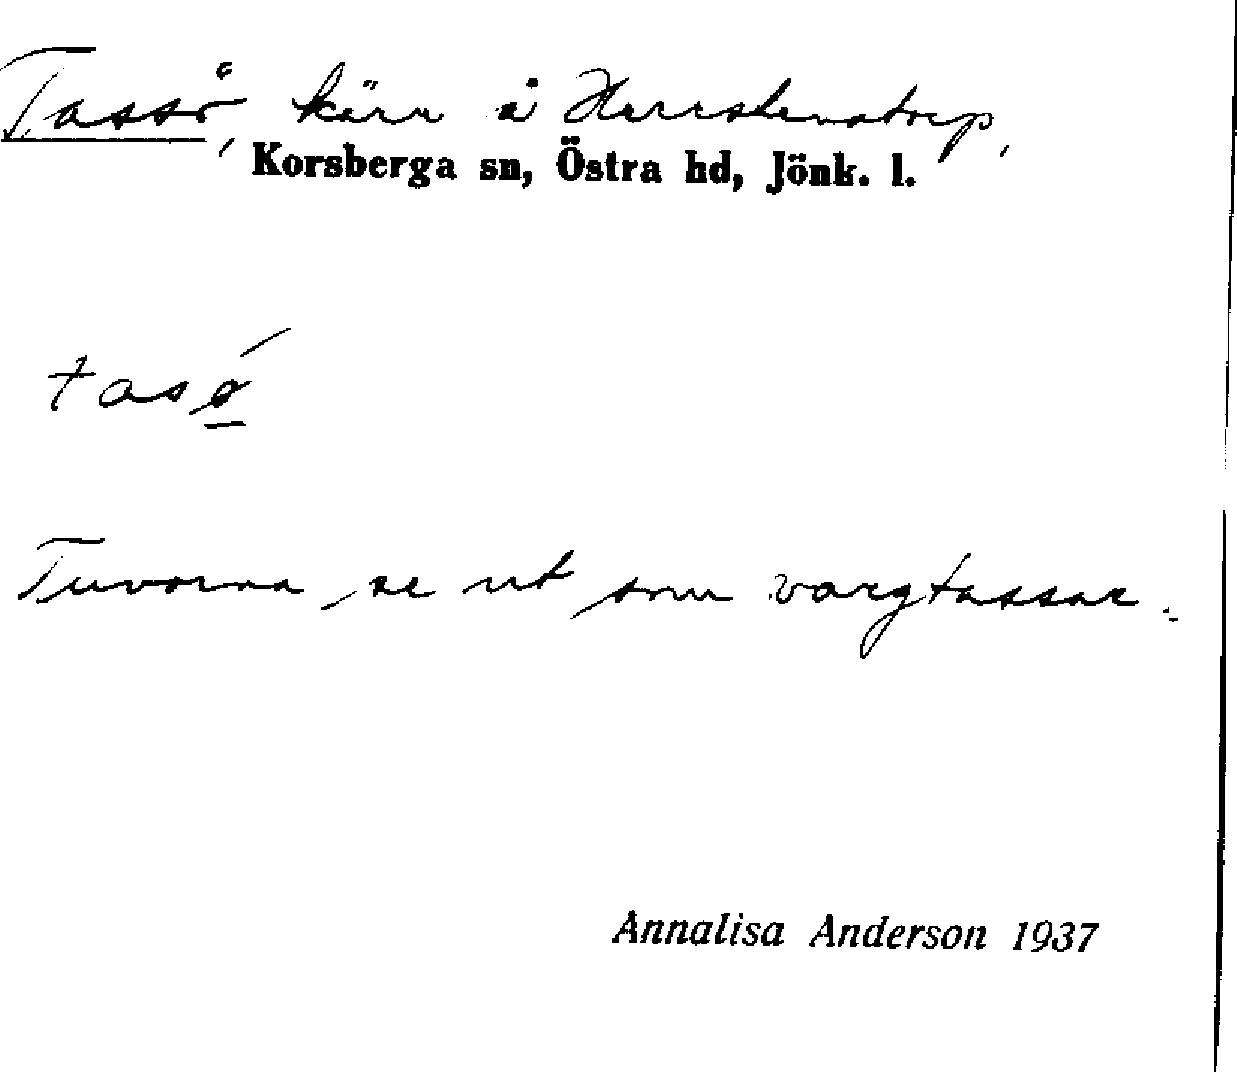 Tasså, kärr å Herrstenstorp,
Korsberga sn, Östra hd, Jönk. l.
Tuvorna se ut som vargtassar.
Annalisa Anderson 1937